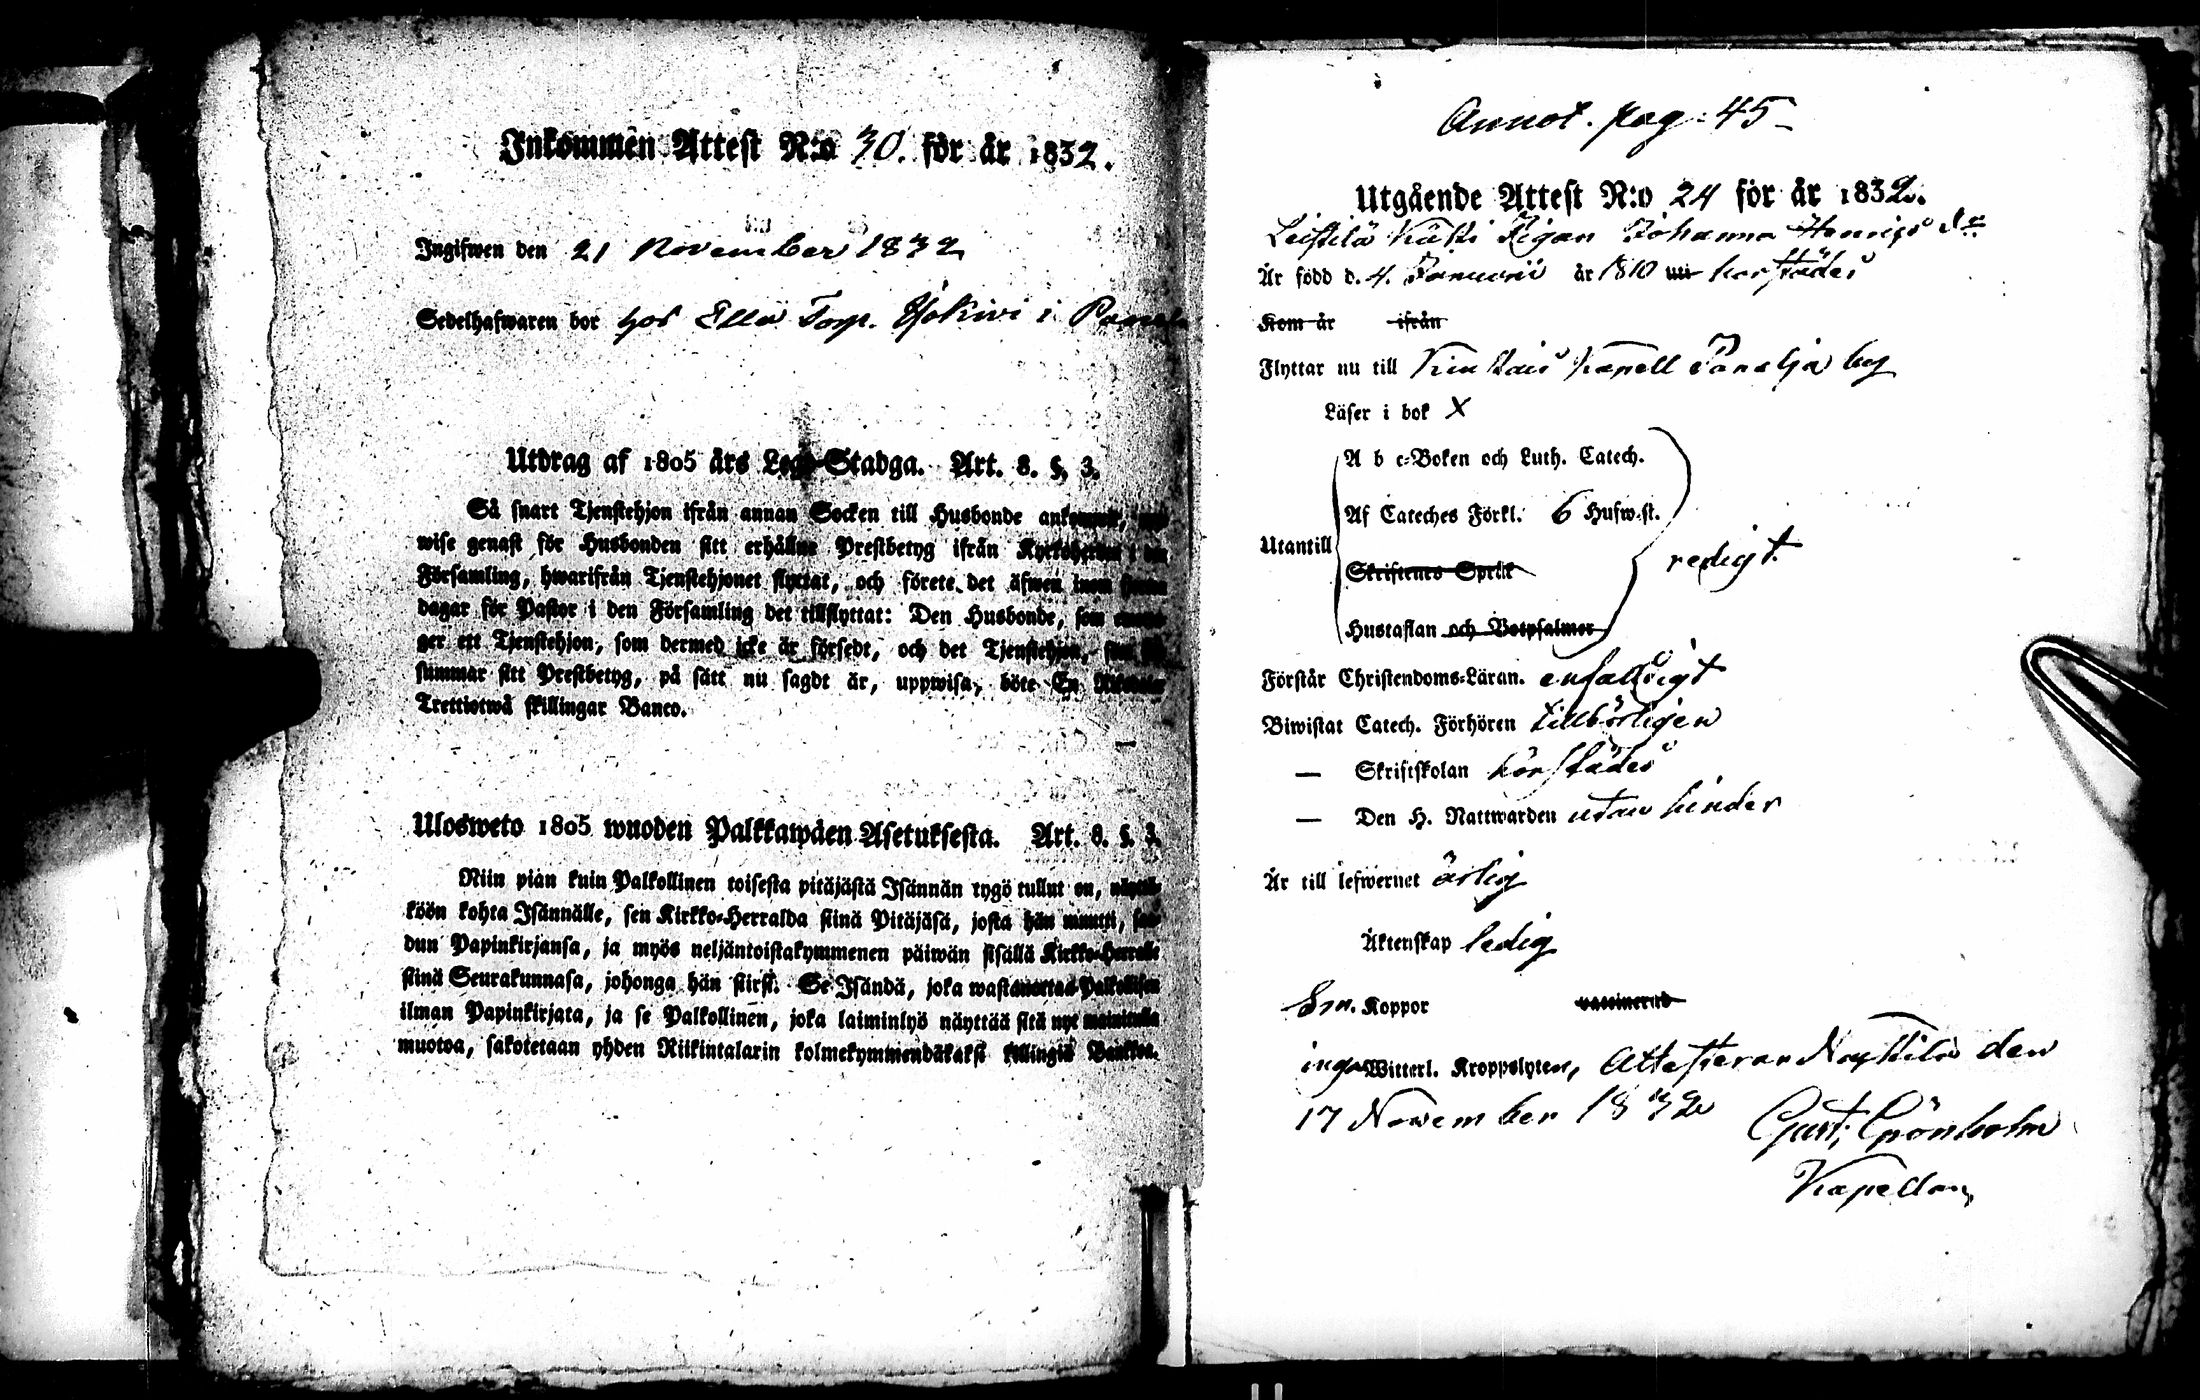 Inkommen Attest N:o 30. för år 1832.
Ingifwen den 21 November 1832
Sedelhafwaren bor hos Ella Torp. Yökiwi i
Utdrag af 1805 års Lego-Stadga. Art. 8. §. 3.
Så snart Tjenstehjon ifrån annan Socken till Husbonde ankommit,
wise genast för Husbonden sitt erhållne Prestbetyg ifrån Kyrkoherden i den
Församling, hwarifrån Tjenstehjonet flyttat, och förete det äfwen inom
dagar för Pastor i den Församling det tillflyttat: Den Husbonde, som
ger ett Tjenstehjon, som dermed icke är försedt, och det Tjenstehjon,
summar sitt Prestbetyg, på sätt nu sagdt är, uppwisa, böte En Riksdaler
Trettiotwå skillingar Banco.
Ulosweto 1805 wuoden Palkkawäen Asetuksesta. Art. 8. §. 3.
Niin pian kuin Palkollinen toisesta pitäjästä Isännän tygö tullut on, näyttä-
köön kohta Isännälle, sen Kirkko-Herralda siinä Pitäjäsä, josta hän muutti, saa-
dun Papinkirjansa, ja myös neljäntoistakymmenen päiwän sisällä Kirkko-Herralle
siinä Seurakunnasa, johonga hän siirsi. Se Isändä, joka wastanottaa Palkollisen
ilman Papinkirjata, ja se Palkollinen, joka laiminlyö näyttää sitä nyt mainitulla
muotoa, sakotetaan yhden Riikintalarin kolmekymmendäkaksi killingiä Bankoa.
Annot. pag. 45
Utgående Attest N:o 24 för år 1832.
Leistilä Kåsti Pigan Johanna Henrics dr
Är född d. 4. Januarii år 1810 uti härstädes
Kom år ifrån
Flyttar nu till Kiukais Kapell Panelja by
Läser i bok X
A b c-Boken och Luth. Catech.
Af Cateches Förkl. 6 Hufw.st.
Utantill
Skriftenes Språk
redigt.
Hustaflan och Botpsalmer
Förstår Christendoms-Läran. enfaldigt
Biwistat Catech. Förhören tillbörligen
— Skriftskolan härstädes
— Den H. Nattwarden utan hinder
Är till lefwernet ärlig
Äktenskap ledig
Koppor vaccinerad
inga Witterl. Kroppslyten, Attesterar Noxtila den
17 November 1832 Gust. Grönholm
Kapellan